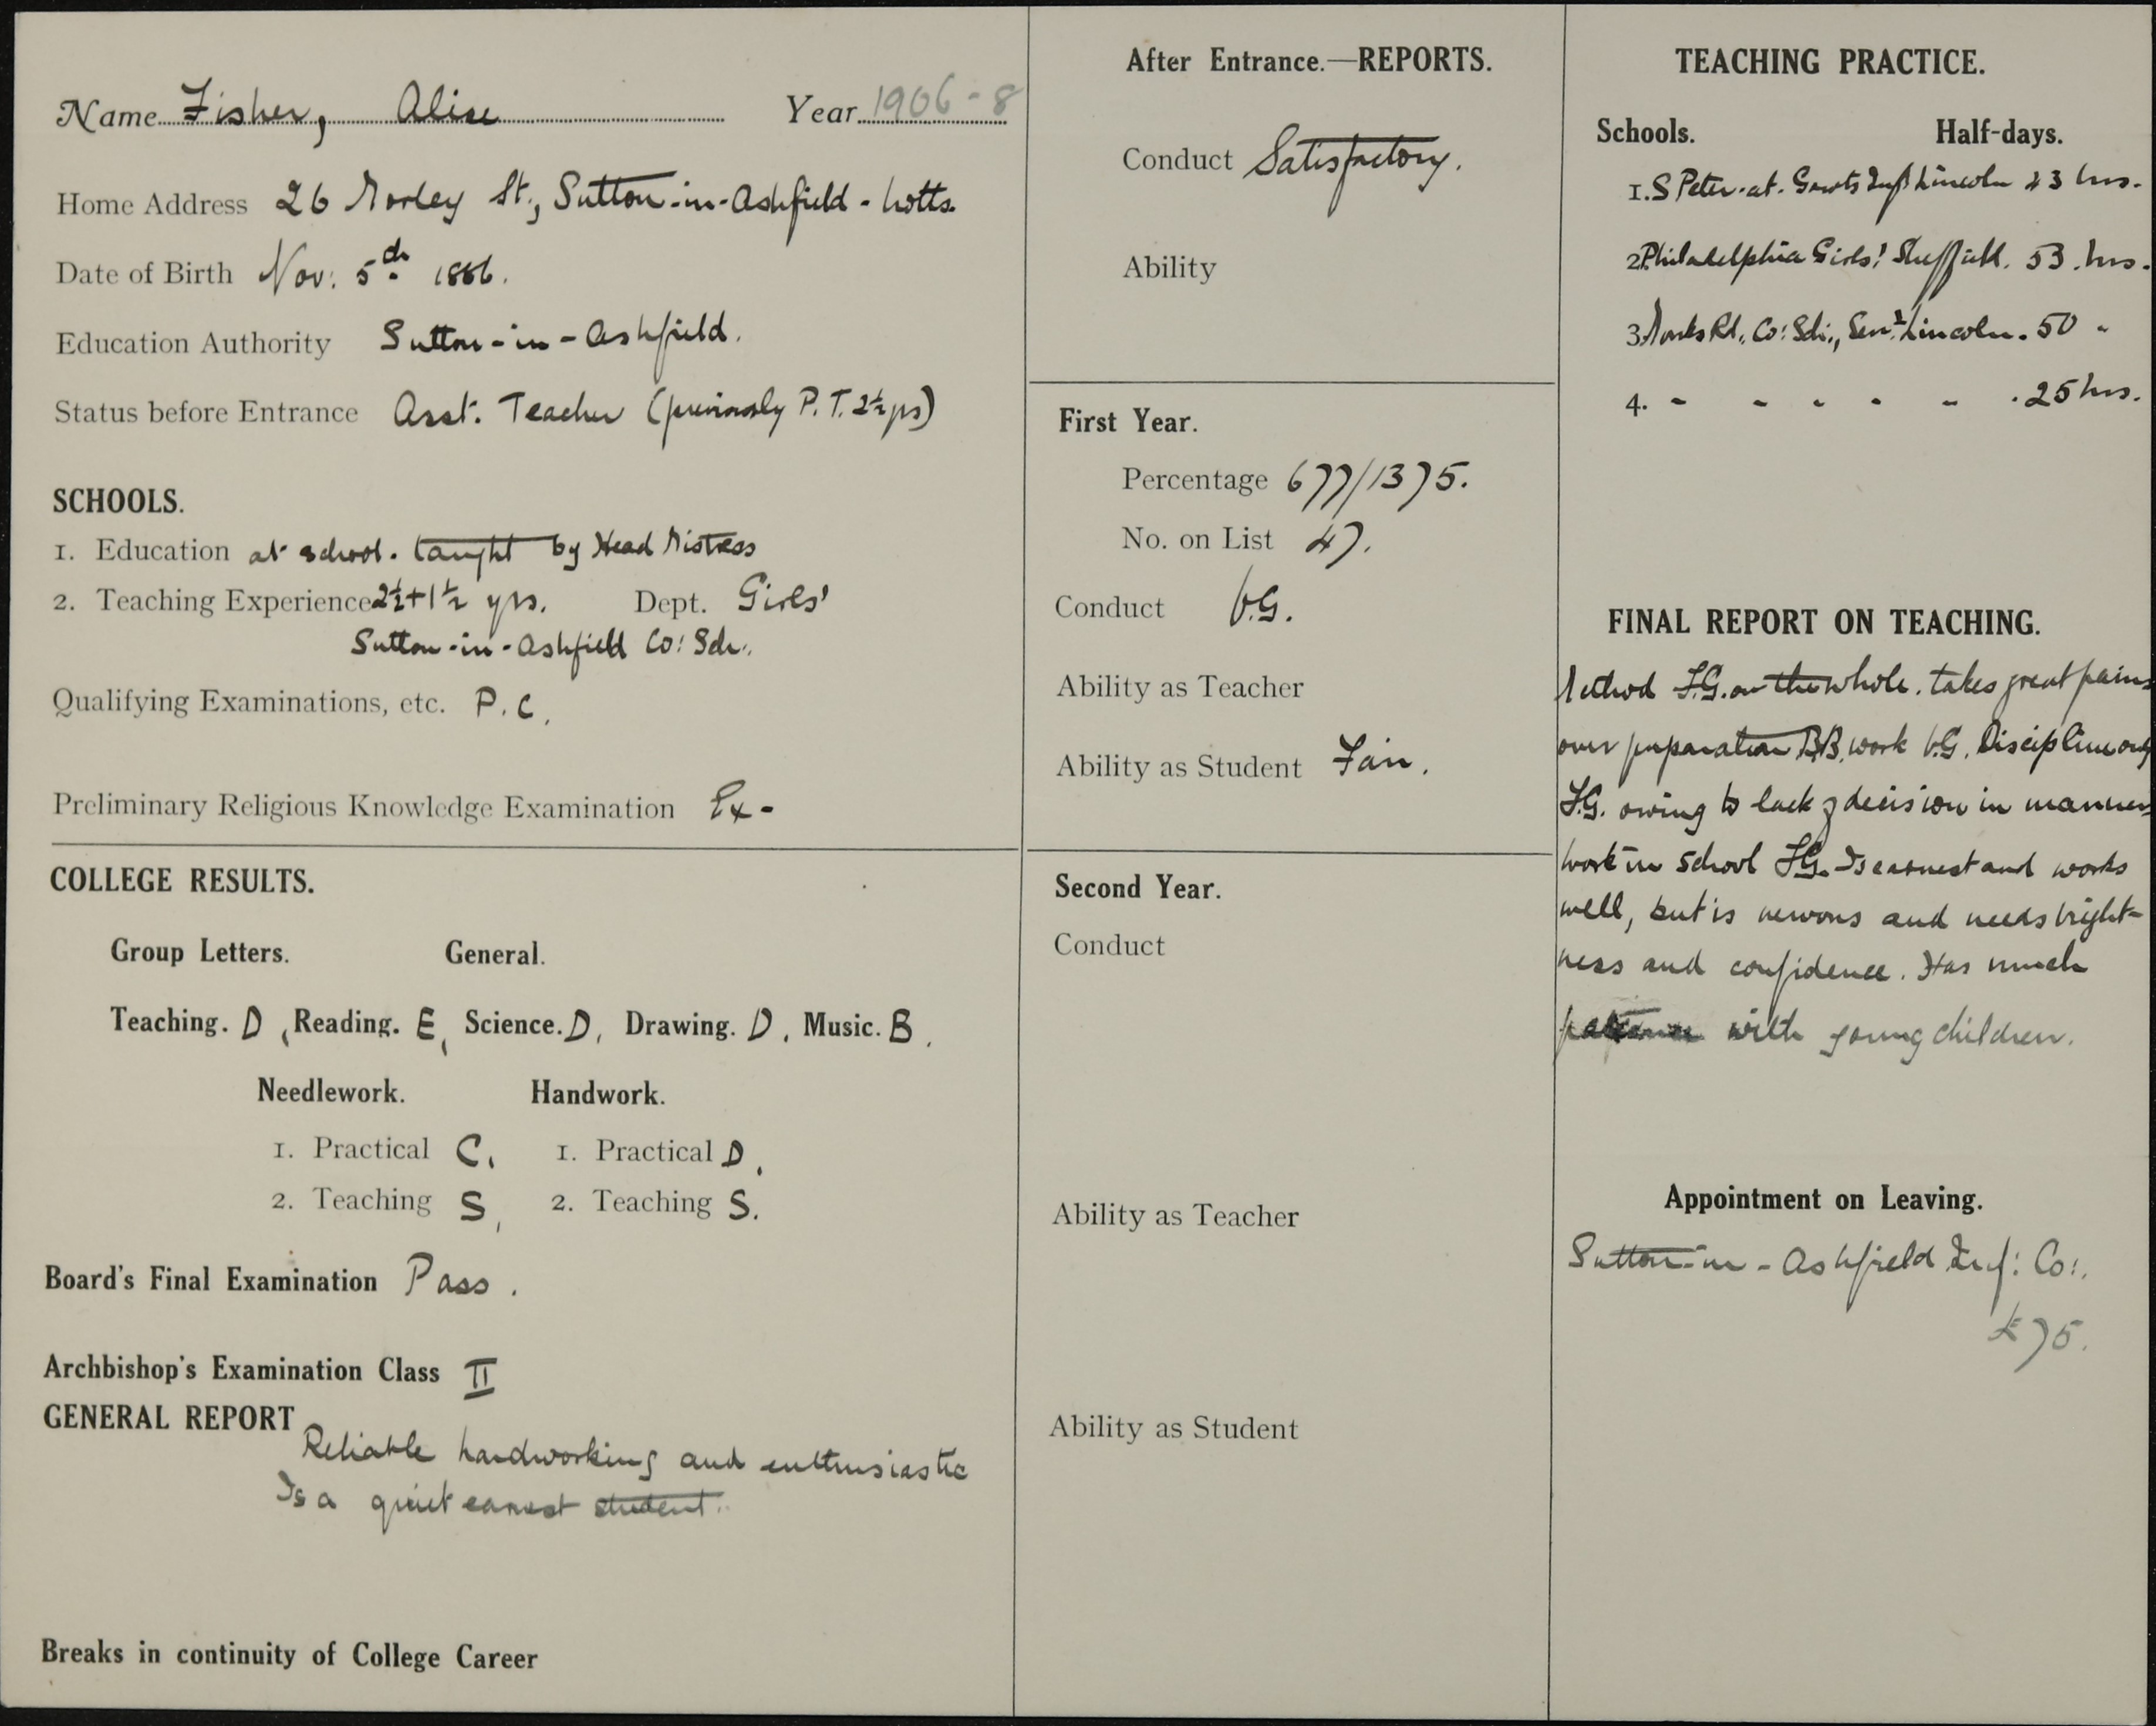 Name Fisher, Alice Year 1906-8
Home Address 26 Morley St., Sutton-in-Ashfield - Notts.
Date of Birth Nov: 5th 1886.
Education Authority Sutton-in-Ashfield.
Status before Entrance Asst. Teacher (previously P.T. 2½ yrs)
SCHOOLS.
1. Education at school. taught by Head Mistress
2. Teaching Experience 2½+1½ yrs. Dept. Girls'
Sutton-in-Ashfield Co: Sch:.
Qualifying Examinations, etc. P.C.
Preliminary Religious Knowledge Examination Ex-
COLLEGE RESULTS.
Group Letters. General.
Teaching. D, Reading. E, Science. D, Drawing. D, Music. B.
Needlework. Handwork.
1. Practical C. 1. Practical D.
2. Teaching S, 2. Teaching S.
Board's Final Examination Pass.
Archbishop's Examination Class II
GENERAL REPORT
Reliable hardworking and enthusiastic
Is a quiet earnest student.
Breaks in continuity of College Career
After Entrance.—REPORTS.
Conduct Satisfactory.
Ability
First Year.
Percentage 677/1375.
No. on List 47.
Conduct V.G.
Ability as Teacher
Ability as Student Fair.
Second Year.
Conduct
Ability as Teacher
Ability as Student
TEACHING PRACTICE.
Schools. Half-days.
1. S Peter-at-Gowts Inf Lincoln 43 hrs.
2. Philadelphia Girls' Sheffield. 53. hrs.
3. Monks Rd., Co: Sch:, Senr Lincoln. 50 "
4. " " " " " . 25 hrs.
FINAL REPORT ON TEACHING.
Method F.G. on the whole. takes great pains
over preparation B.B. work V.G. Discipline only
F.G. owing to lack of decision in manner
Work in school F.G. Is earnest and works
well, but is nervous and needs bright-
ness and confidence. Has much
patience with young children.
Appointment on Leaving.
Sutton-in-Ashfield Inf: Co:.
£75.